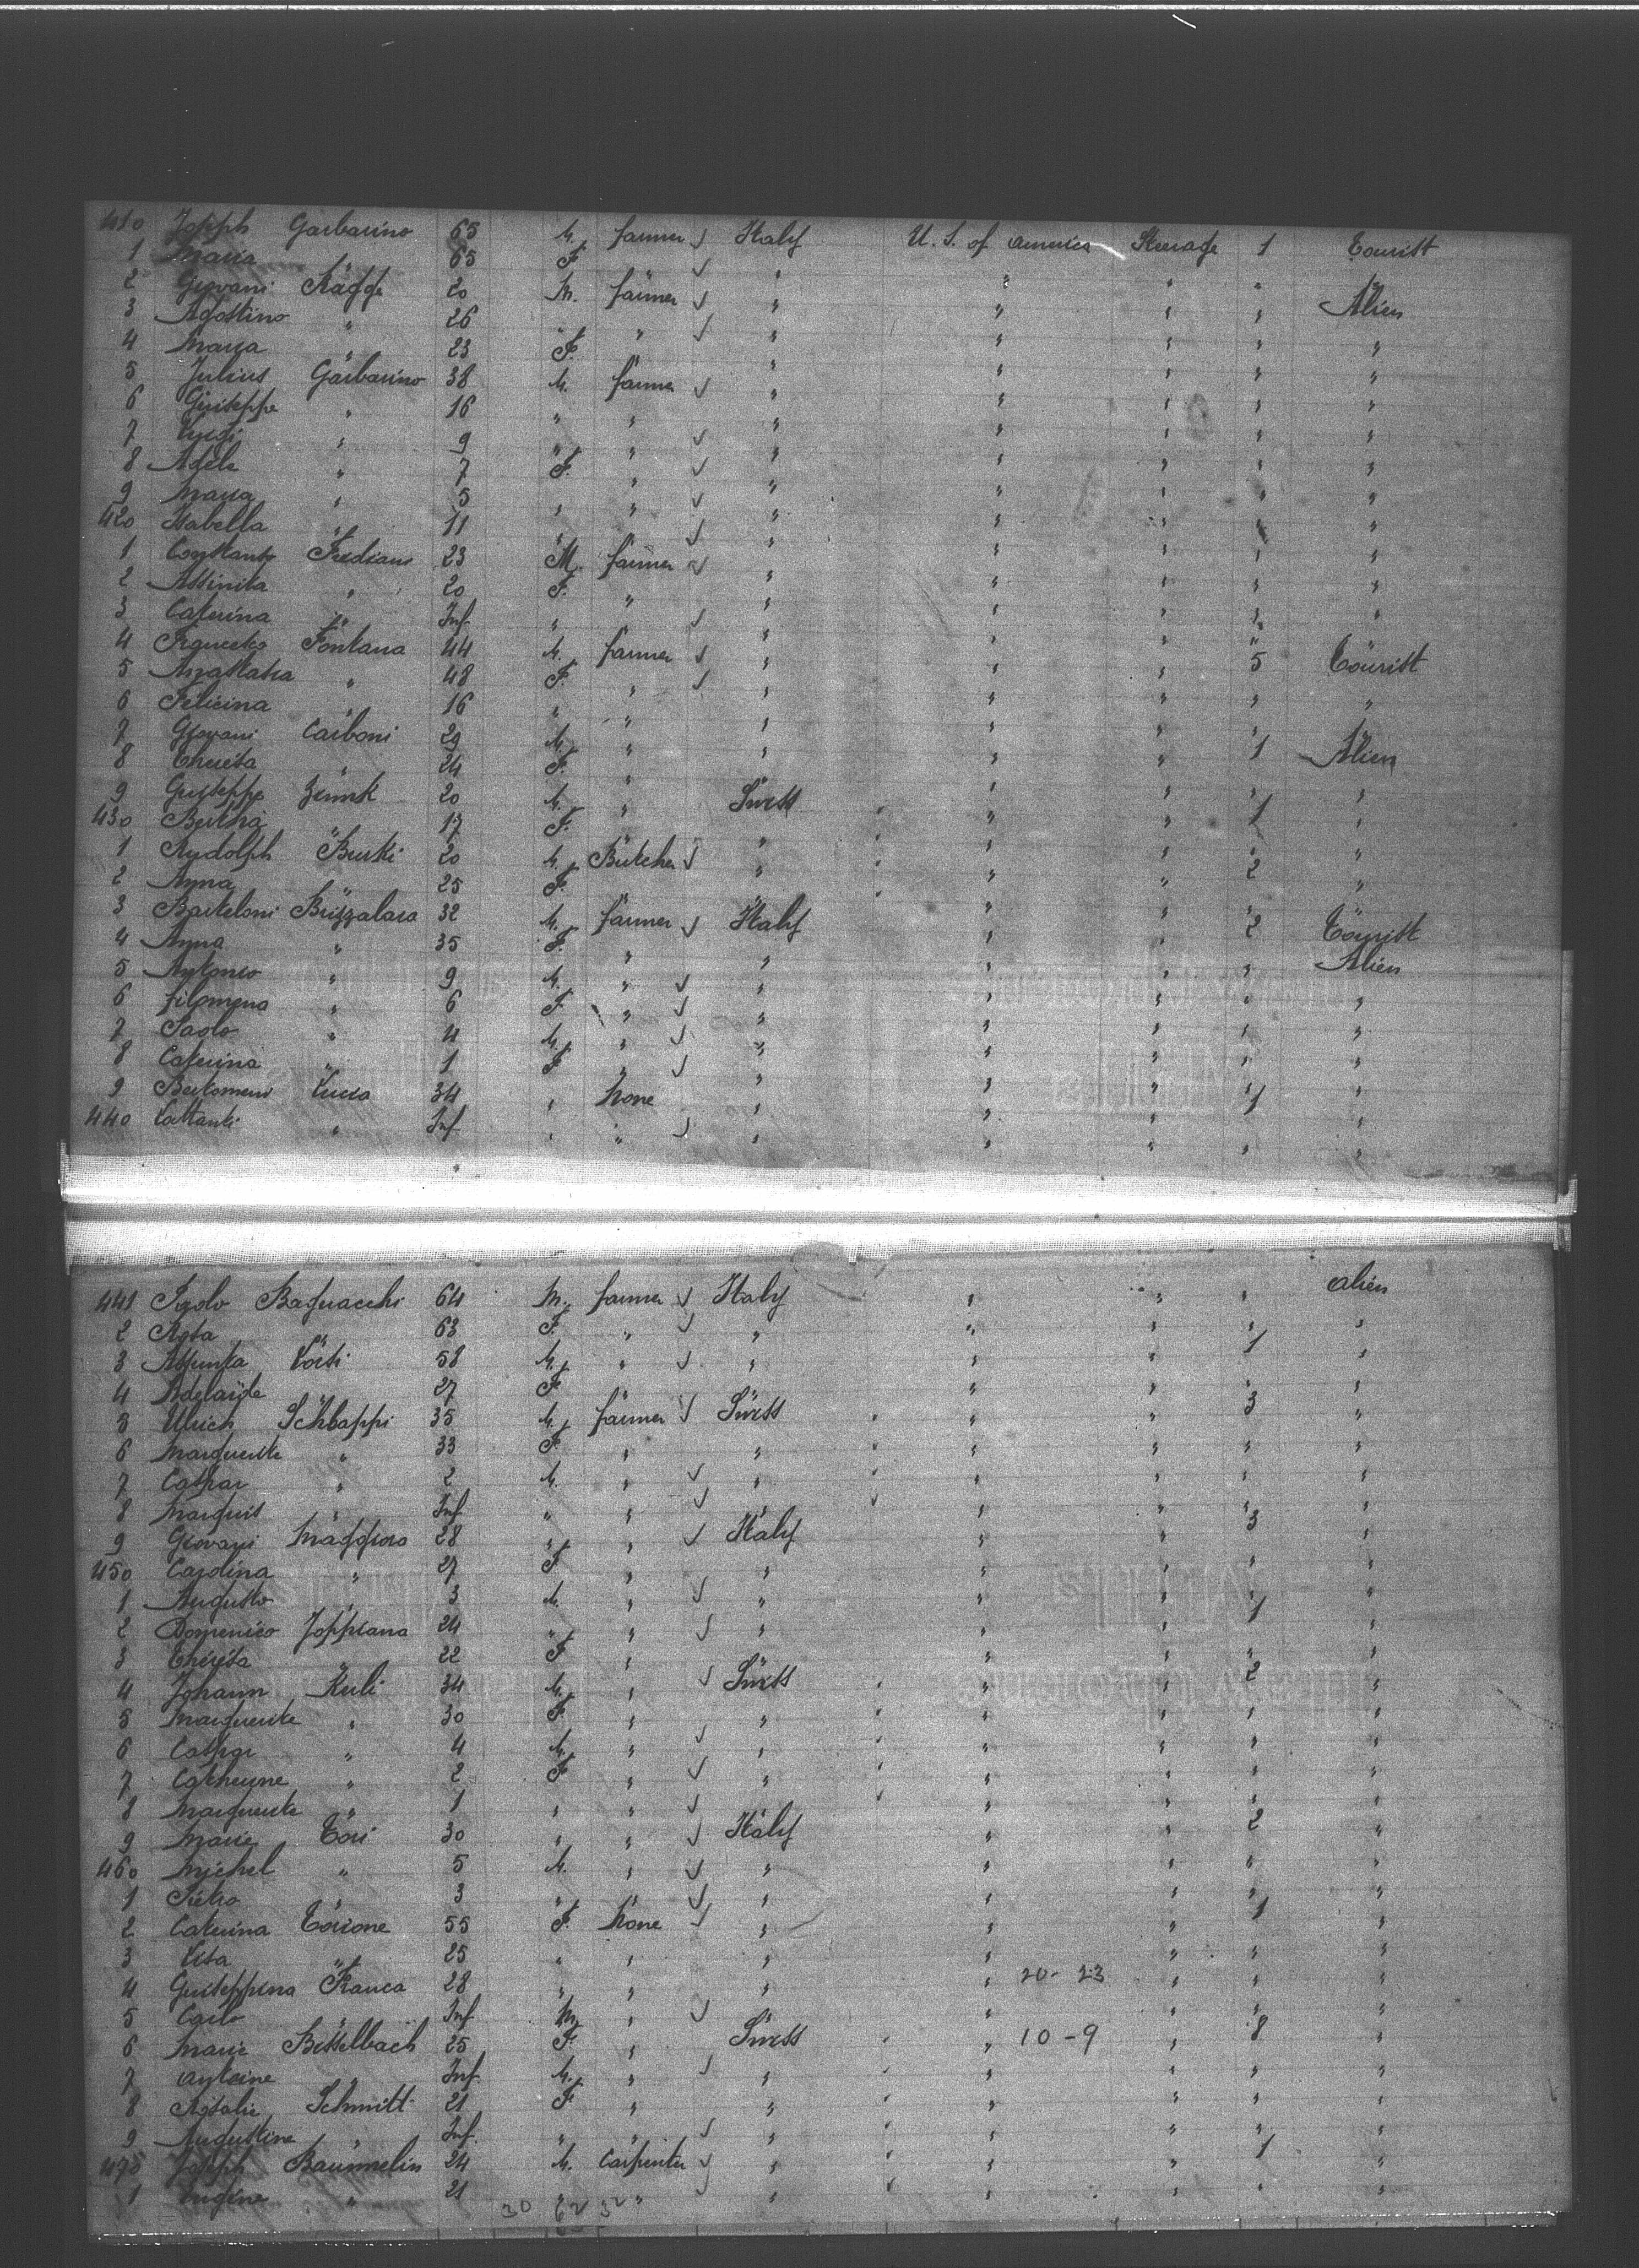 410 Joseph Garbarino 65 M. farmer Italy U. S. of America Steerage 1 Tourist
1 Maria " 65 F. " " " " "
2 Giovani Raggi 20 M. farmer " " " " Alien
3 Agostino " 26 " " " " " "
4 Maria " 23 F. " " " " "
5 Julius Garbarino 38 M. farmer " " " " "
6 Giuseppe " 16 " " " " " " "
7 Luigi " 9 " " " " " " "
8 Adele " 7 F. " " " " " "
9 Maria " 5 " " " " " " "
420 Isabella " 11 " " " " " "
1 Constanto Frediano 23 M. farmer " " " " "
2 Assinita " 20 F. " " " " " "
3 Caterina " Inf. " " " " " "
4 Fontana 44 M. farmer " " " 5 Tourist
5 " 48 F. " " " " " "
6 Felicina " 16 " " " " " "
7 Giovani Carboni 29 M. " " " " 1 Alien
8 Theresa " 24 F. " " " " "
9 Giuseppe 20 M. " Swiss " " 1 "
430 Bertha 17 F. " " " " "
1 Rudolph Burki 20 M. Butcher " " " 2 "
2 Anna 25 F. " " " "
3 Barteloni Brizzalara 32 M. farmer Italy " " 2 Tourist
4 Anna " 35 F. " " " " " Alien
5 Antonio " 9 M. " " " " " "
6 filomena " 6 F. " " " " " "
7 Paolo " 4 M. " " " " " "
8 Caterina " 1 F " " " " " "
9 Lucia 34 " None " " " 1 "
440 " Inf. " " " " " " "
441 Bagnacchi 64 M. farmer Italy " " " alien
2 " 63 F. " " " " " "
3 Assunta 58 M. " " " " 1 "
4 Adelaide 27 F. " " " "
5 Ulrich Schlappi 35 M. farmer Swiss " " 3 "
6 Marguerite " 33 F. " " " " " "
7 Caspar " 2 M. " " " " " "
8 Marguis " Inf. " " " " " "
9 Giovani Maggiora 28 " " Italy " " 3 "
450 Carolina " 27 F. " " " " " "
1 Augusto " 3 M. " " " " " "
2 Domenico Joppiana 24 " " " " " 1 "
3 Theresa " 22 F. " " " " "
4 Johann Kubli 34 M. " Swiss " " 2 "
5 Marguerite " 30 F. " " " " " "
6 Caspar " 4 M. " " " " " "
7 Catherine " 2 F. " " " " " "
8 Marguerite " 1 " " " " " "
9 Marie Tori 30 " " Italy " " 2 "
460 Michel " 5 M. " " " " " "
1 Pietro " 3 " " " " " " "
2 Caterina Torione 55 F. None " " " 1 "
3 " 25 " " " " " " "
4 Giuseppina Franca 28 " " " " 20 - 23 " "
5 Carlo " Inf. M. " " " " "
6 Marie Bisselbach 25 F. " Swiss " 10 - 9 " 8 "
7 Antoine " Inf. M. " " " " " "
8 Schmitt 21 F. " " " " " "
9 Augustine " Inf. " " " " " " "
470 Joseph Baumelin 24 M. Carpenter " " " 1 "
1 " 21 " " " " " " "
30 62 32